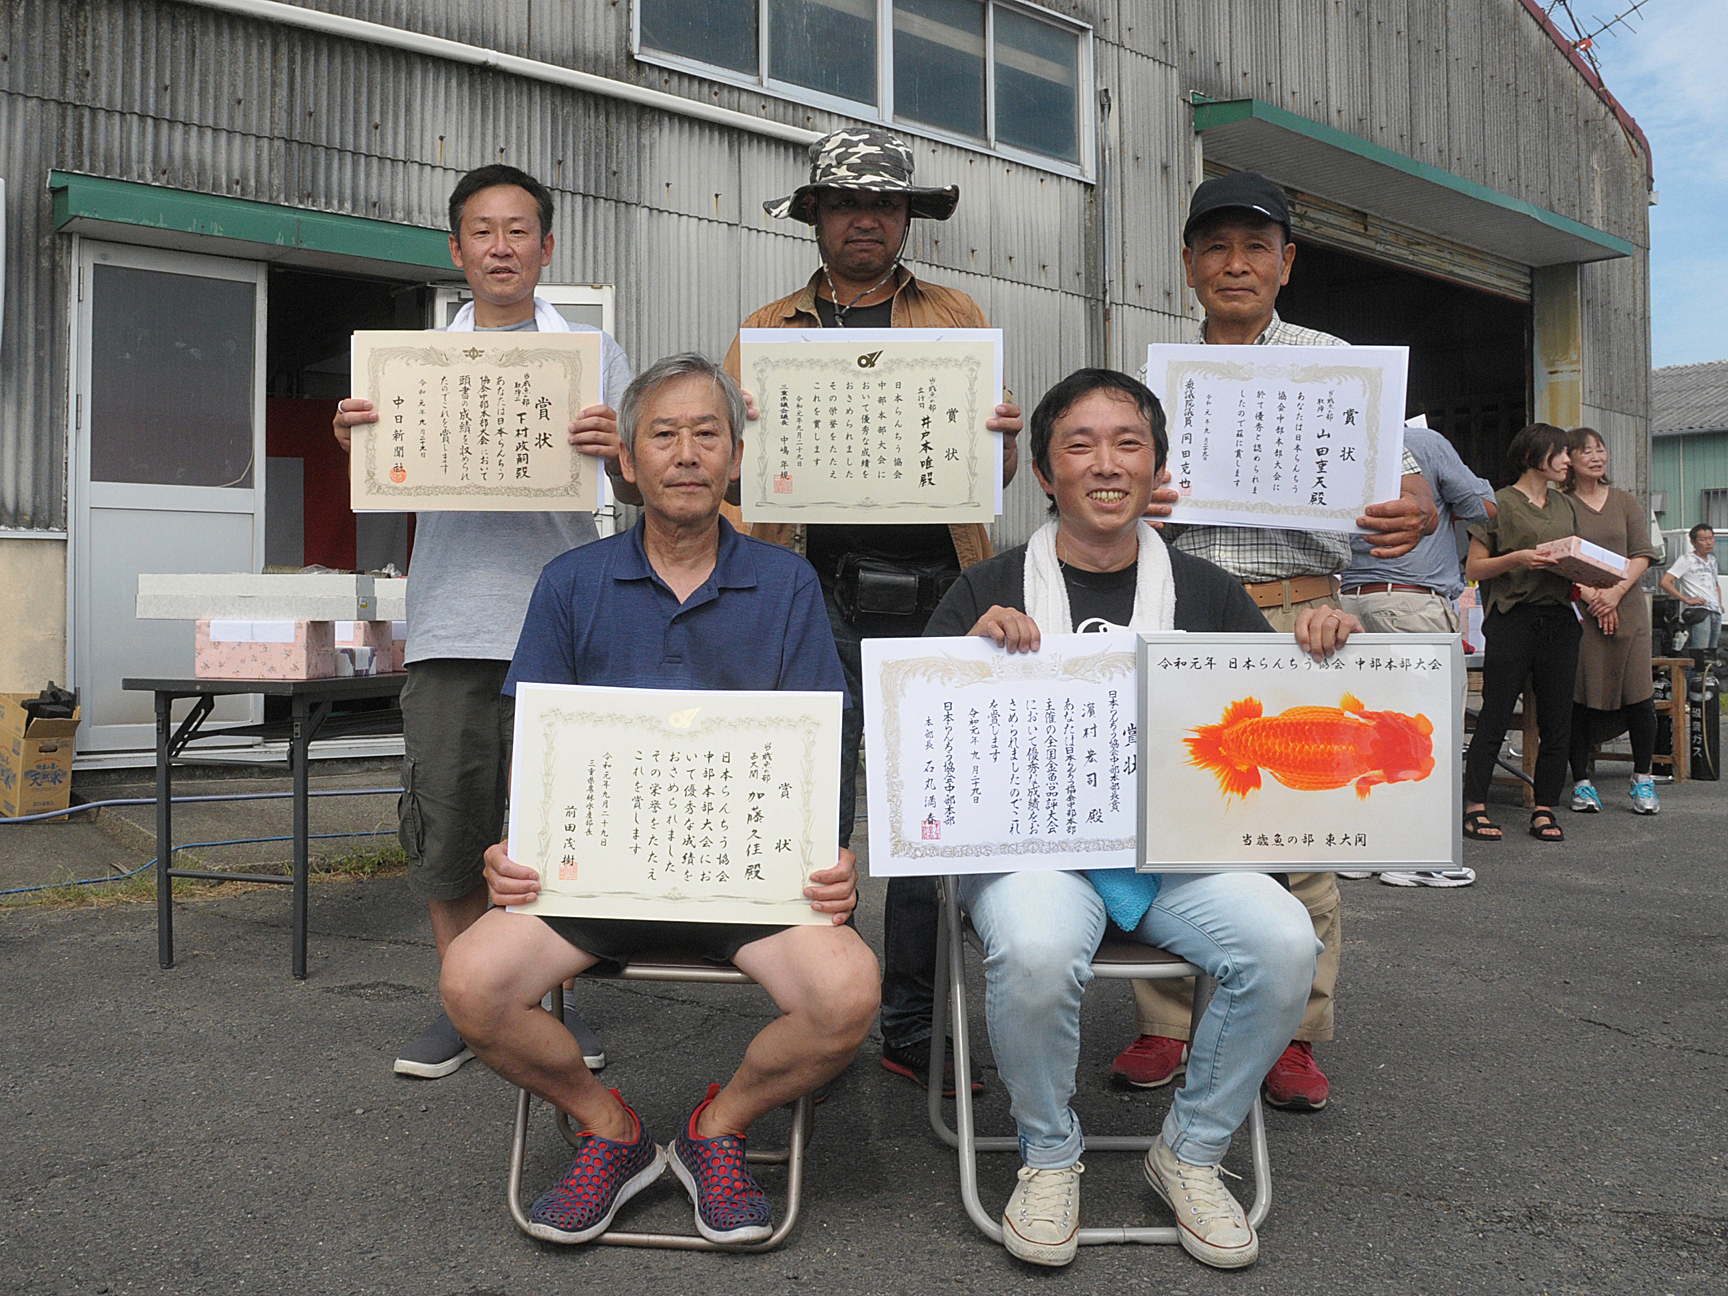 賞状
当歳魚の部
取締二 下村政嗣殿
あなたは日本らんちう
協会中部本部大会において
頭書の成績を収められ
たのでこれを賞します
令和元年九月二十九日
中日新聞社
賞状
当歳魚の部
立行司 井戸本唯殿
日本らんちう協会
中部本部大会に
おいて優秀な成績を
おさめられました
その栄誉をたたえ
これを賞します
令和元年九月二十九日
三重県議会議長 中嶋年規
賞状
当歳魚の部
取締一 山田重天殿
あなたは日本らんちう
協会中部本部大会に
於て優秀と認められま
したので茲に賞します
令和元年九月二十九日
衆議院議員 岡田克也
賞状
当歳魚の部
西大関 加藤久佳殿
日本らんちう協会
中部本部大会にお
いて優秀な成績を
おさめられました
その栄誉をたたえ
これを賞します
令和元年九月二十九日
三重県農林水産部長
前田茂樹
賞状
日本らんちう協会中部本部長賞
濱村宏司殿
あなたは日本らんちう協会中部本部
主催の全国金魚品評大会
において優秀な成績をお
さめられましたのでこれ
を賞します
令和元年九月二十九日
日本らんちう協会中部本部
本部長 石丸満春
令和元年 日本らんちう協会 中部本部大会
当歳魚の部 東大関
天然水
ガス